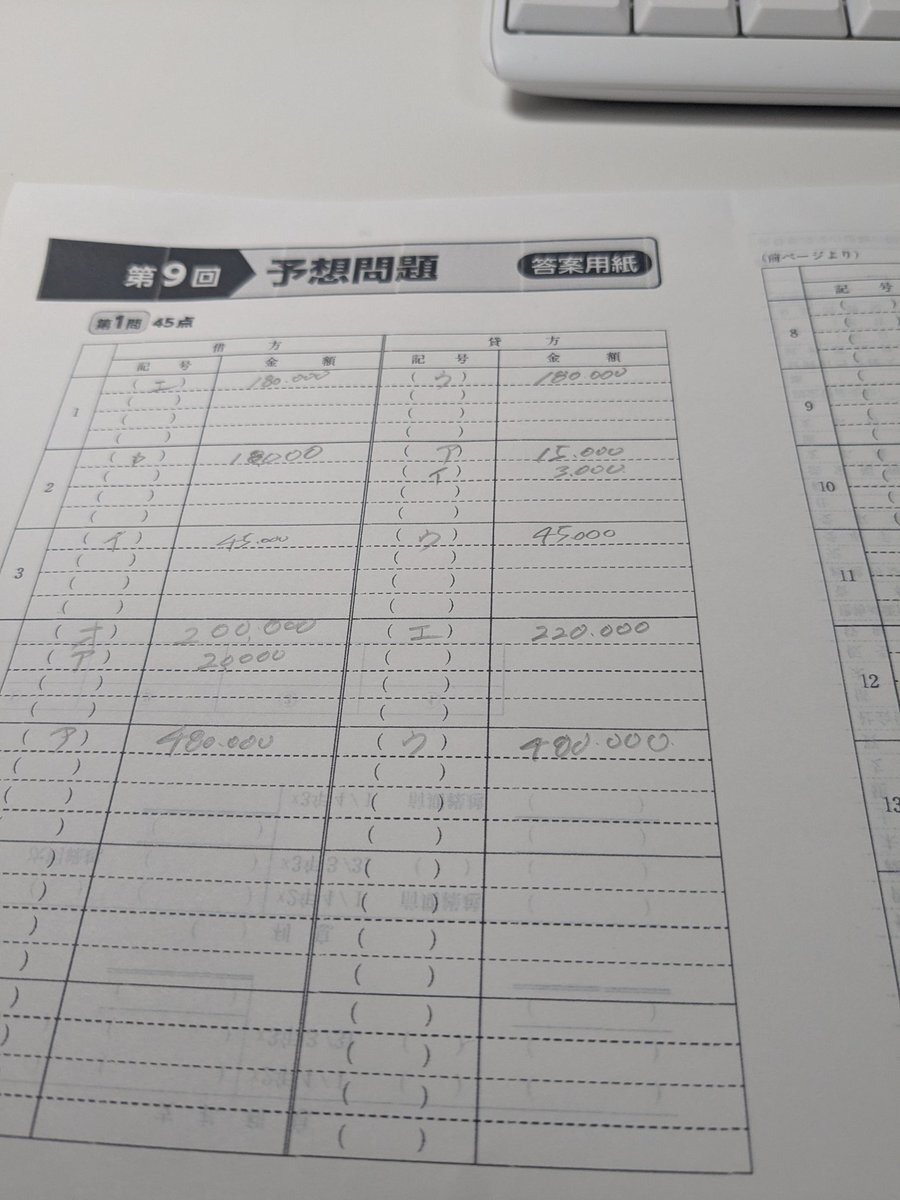 第9回 予想問題 答案用紙
第1問 45点
借 方 貸 方
記 号 金 額 記 号 金 額
1 (エ) 180.000 (ウ) 180.000
( ) ( )
( ) ( )
( ) ( )
2 ( ) (ア) 15.000
( ) (イ) 3.000
( ) ( )
( ) ( )
3 (イ) 45.000 (ウ) 45000
( ) ( )
( ) ( )
( ) ( )
(オ) 200,000 (エ) 220.000
(ア) 20000 ( )
( ) ( )
( ) ( )
(ア) 480.000 (ウ) 480.000
( ) ( )
( ) ( )
( ) ( )
(前ページより)
記 号
8
9
10
11
12
13